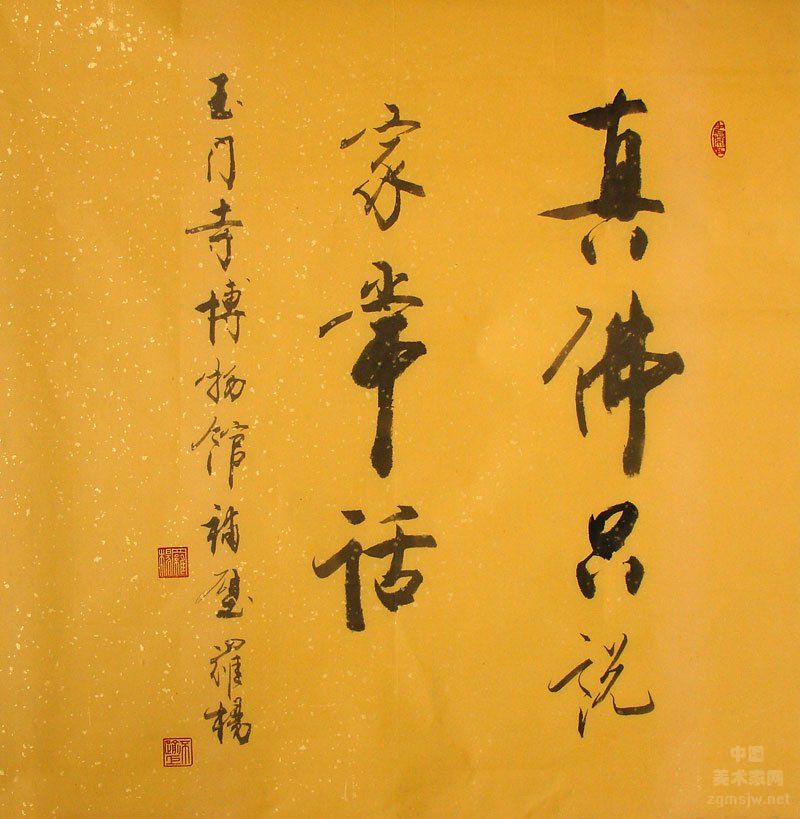 真佛只说
家常话
玉门寺博物馆补壁 罗杨
中国
美术家网
zgmsjw.net